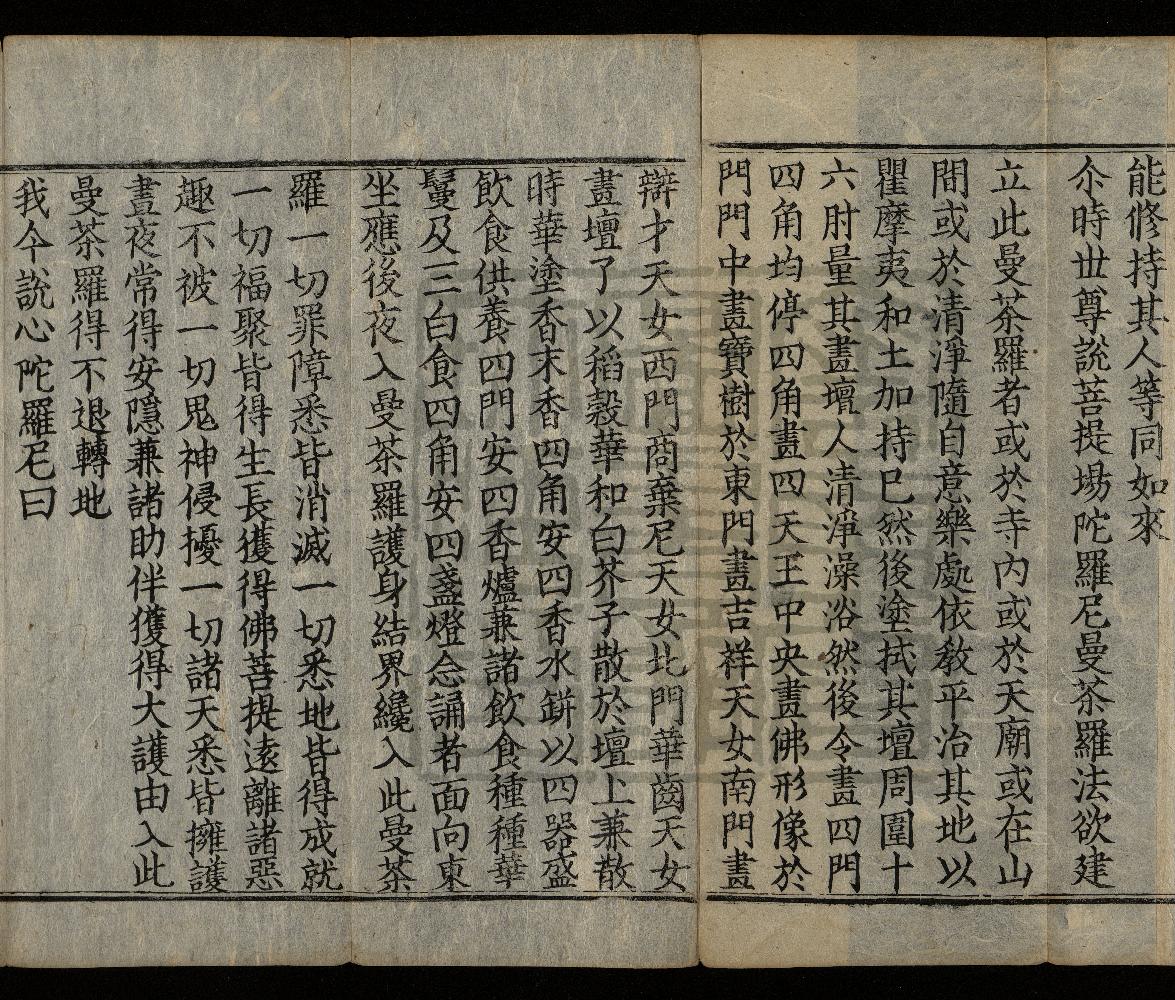 能修持其人等同如來
尒時世尊說菩提場陀羅尼曼荼羅法欲建
立此曼荼羅者或於寺內或於天廟或在山
間或於清淨隨自意樂處依教平治其地以
瞿摩夷和土加持已然後塗拭其壇周圍十
六肘量其畫壇人清淨澡浴然後令畫四門
四角均停四角畫四天王中央畫佛形像於
門門中畫寶樹於東門畫吉祥天女南門畫
辯才天女西門商棄尼天女北門華齒天女
畫壇了以稻穀華和白芥子散於壇上兼散
時華塗香末香四角安四香水缾以四器盛
飲食供養四門安四香爐兼諸飲食種種華
鬘及三白食四角安四盞燈念誦者面向東
坐應後夜入曼荼羅護身結界纔入此曼荼
羅一切罪障悉皆消滅一切悉地皆得成就
一切福聚皆得生長獲得佛菩提遠離諸惡
趣不被一切鬼神侵擾一切諸天悉皆擁護
晝夜常得安隱兼諸助伴獲得大護由入此
曼荼羅得不退轉地
我今說心陀羅尼曰